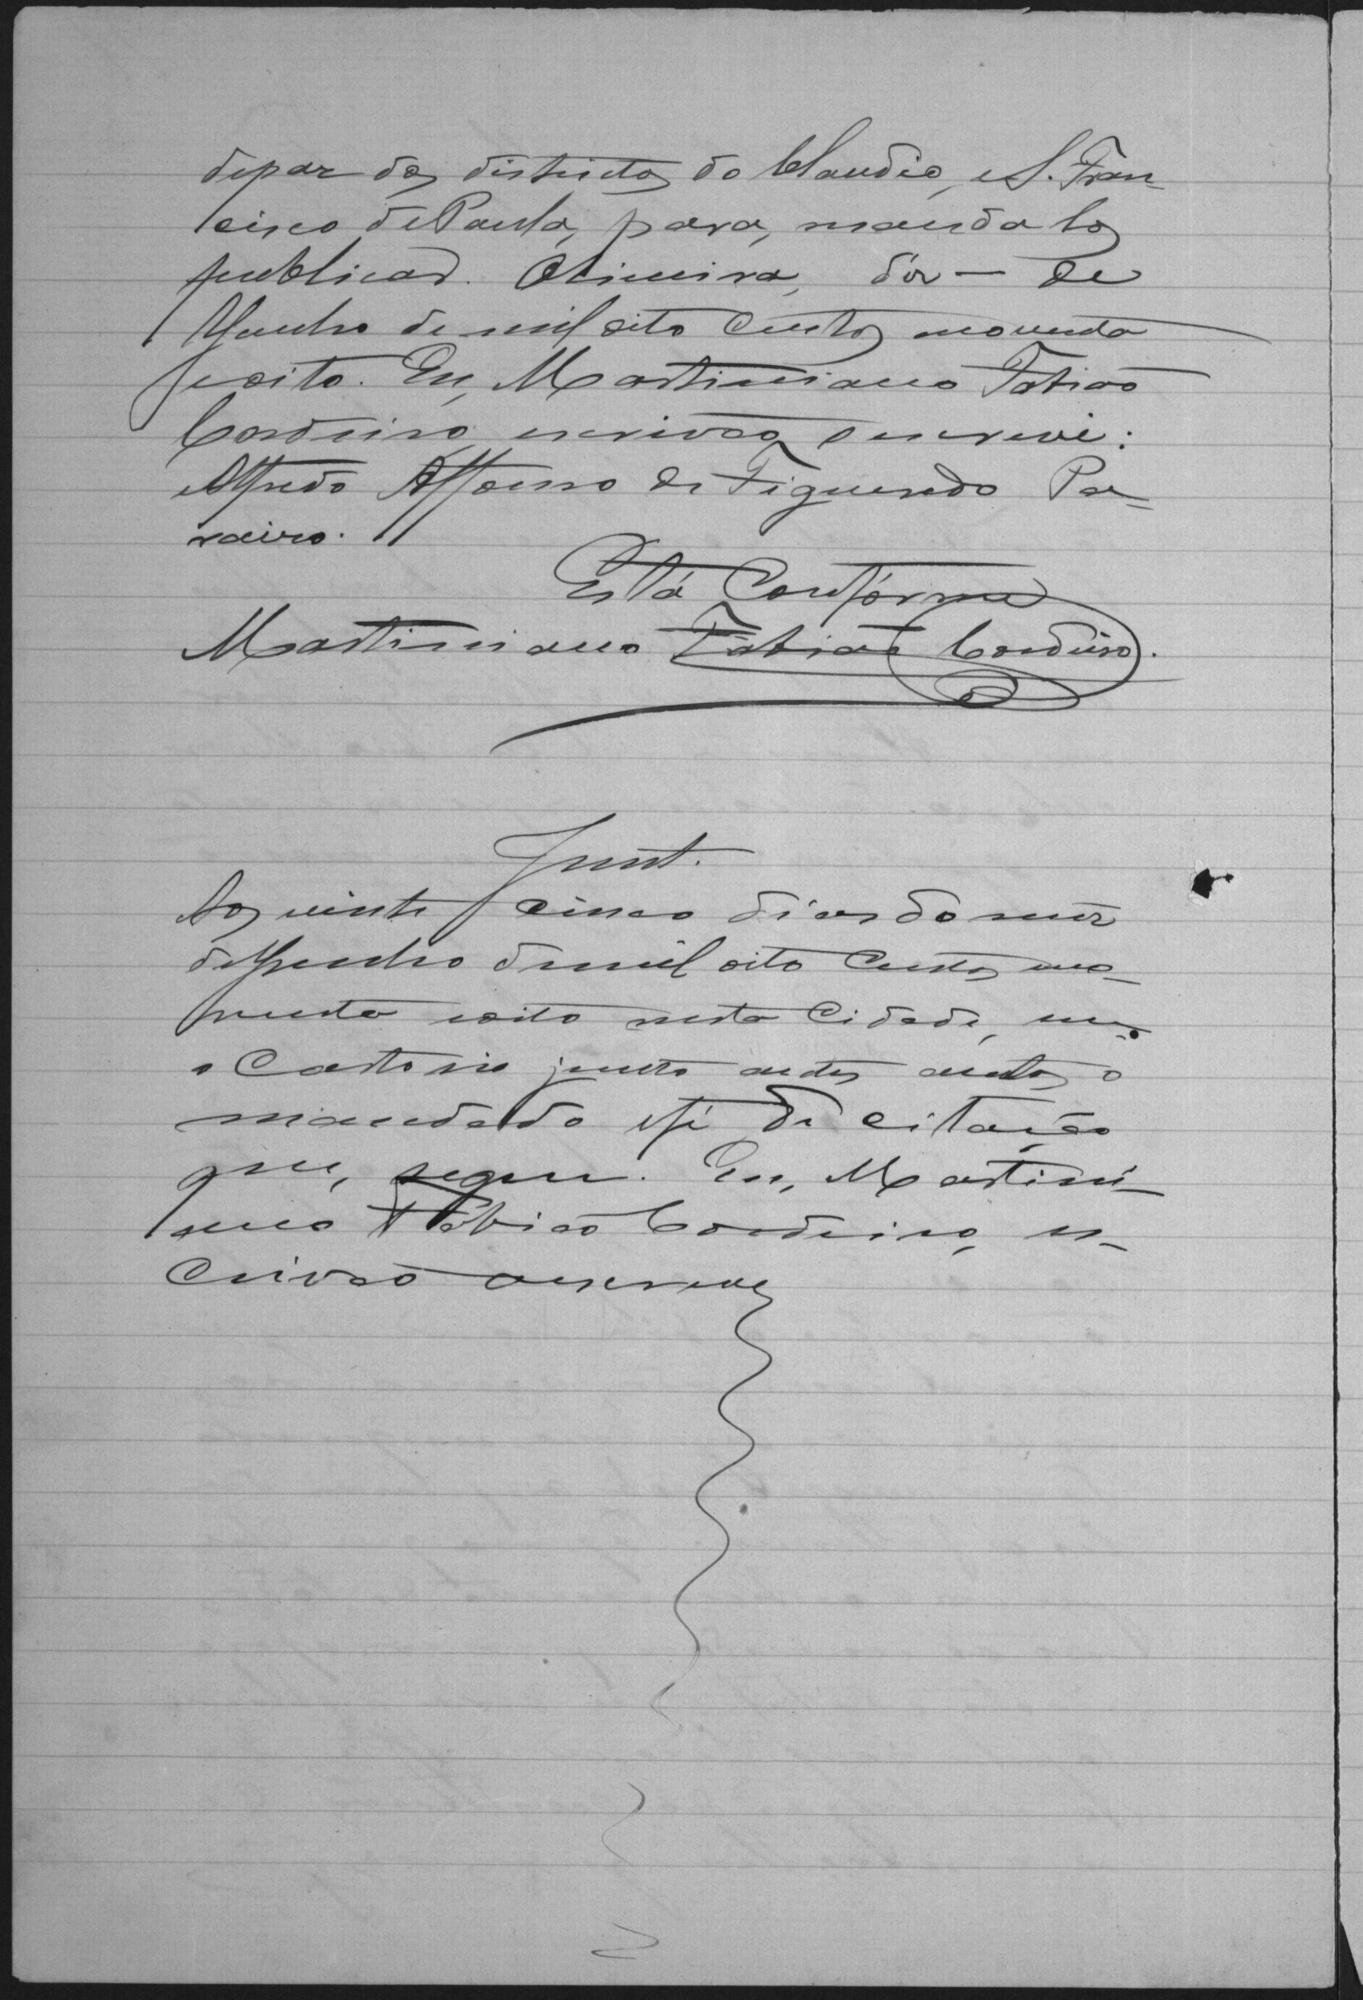 de paz dos districtos do Claudio, e S. Fran
cisco de Paula, para, manda los
publicar. Oliveira, dôs — de
Junho de mil oito centos noventa
e oito. Eu, Martiniano Fabião
Cordeiro, escrivão escrevi:
Alfredo Affonso de Figueredo Pa-
raiso.
Está Confórme
Martiniano Fabião Cordeiro.
Junt.
Aos vinte e cinco dias do mez
de Junho de mil oito centos no-
venta e oito nesta Cidade, em
o Cartorio junto a estes autos o
mandado e fé de citação
que, segue. Eu, Martini-
ano Fabião Cordeiro, es-
crivão o escrevy